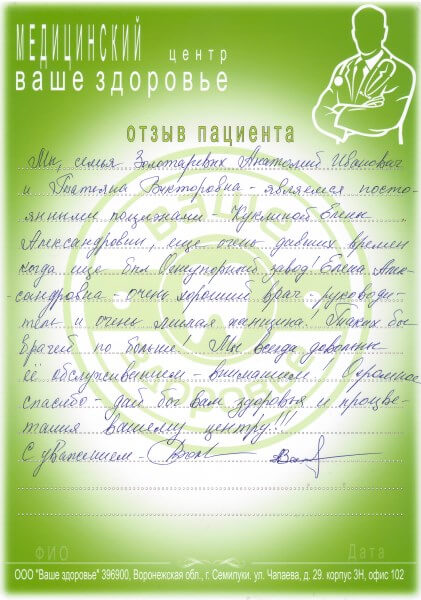 МЕДИЦИНСКИЙ центр
ваше здоровье
отзыв пациента
Мы, семья Золотаревых Анатолий Иванович
и Татьяна Викторовна - являемся посто-
янными пациэнтами - Куклиной Елены
Александровны, еще очень давних времен
когда ещё был Огнеупорный завод! Елена Алек-
-сандровна - очень хороший врач, руководи-
тель и очень милая женщина! Таких бы
врачей по больше! Мы всегда довольны
её обслуживанием - вниманием! Огромное
спасибо - дай бог вам здоровья и процве-
тания вашему центру!!!
С уважением -
ФИО Дата
ООО "Ваше здоровье" 396900, Воронежская обл., г. Семилуки. ул. Чапаева, д. 29. корпус 3Н, офис 102